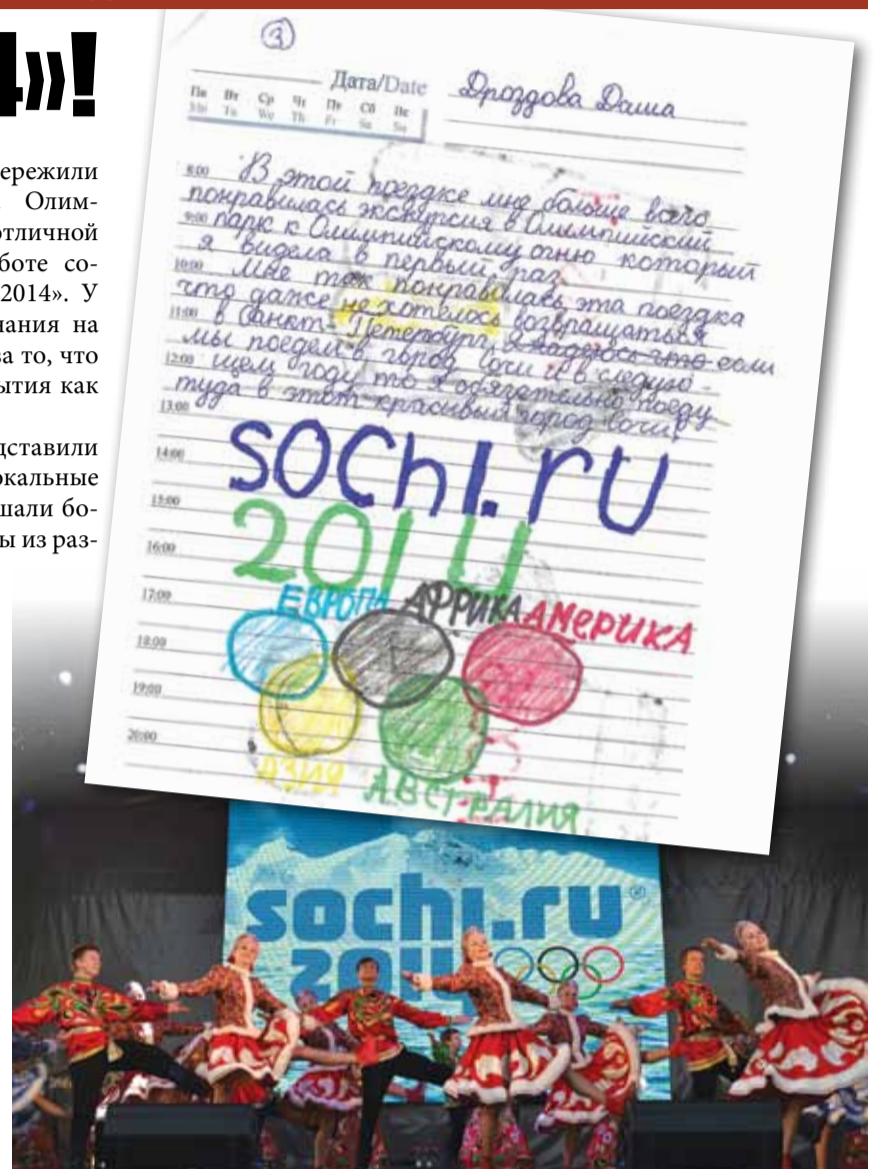 4»!
ережили
Олим-
отличной
боте со-
2014». У
нания на
ва то, что
бытия как
дставили
окальные
шали бо-
ы из раз-
3
Дата/Date
Дроздова Даша
Пн Вт Ср Чт Пт Сб Вс
Mo Tu We Th Fr Sa Su
8:00 В этой поездке мне больше всего
понравилась экскурсия в Олимпийский
9:00 парк к Олимпийскому огню который
я видела в первый раз
10:00 Мне так понравилась эта поездка
что даже не хотелось возвращаться
11:00 в Санкт-Петербург, я надеюсь что если
мы поедем в город Сочи и в следую-
12:00 щем году то я обязательно поеду
туда в этот красивый город Сочи!
13:00
14:00
15:00
16:00
17:00
18:00
19:00
20:00
SOCHI.RU
2014
ЕВРОПА АФРИКА АМЕРИКА
АЗИЯ АВСТРАЛИЯ
sochi.ru
2014